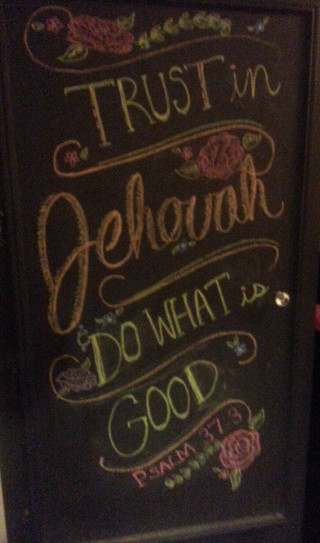 TRUST in
Jehovah
DO WHAT is
GOOD
PSALM 37 3